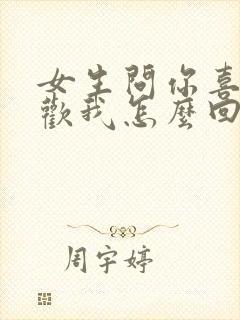 女生問你喜
歡我怎麼回
周宇婷